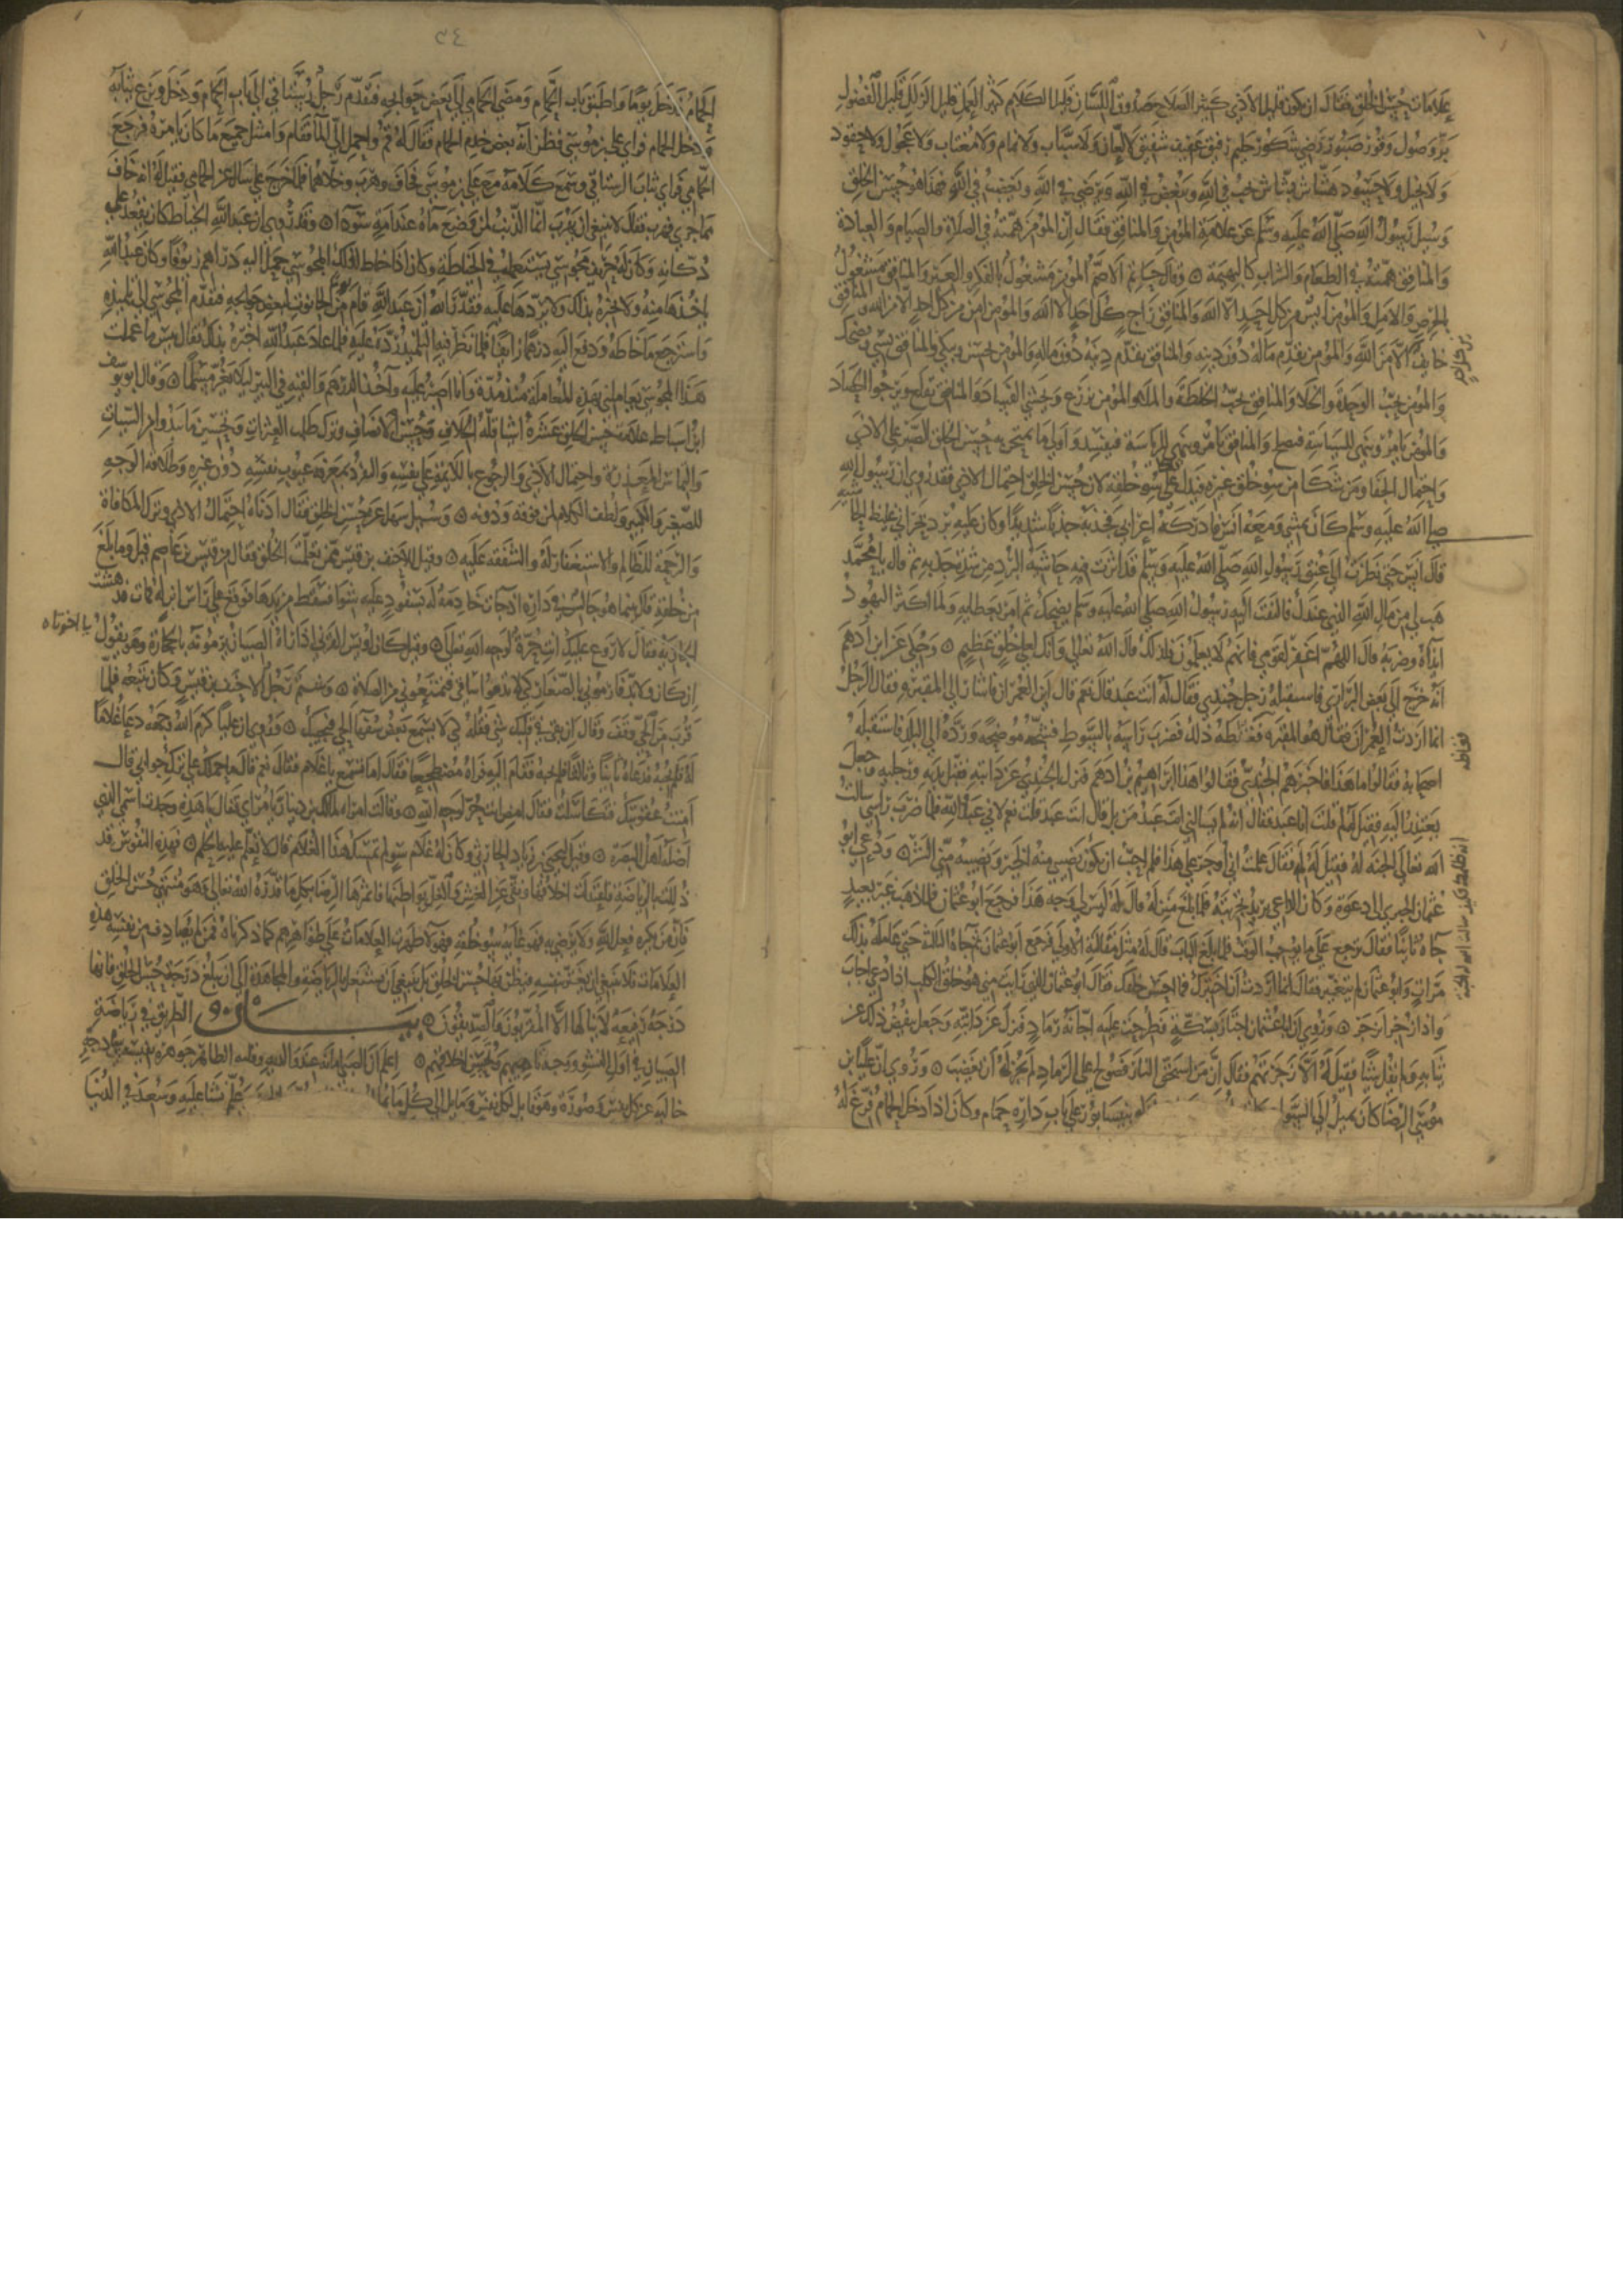 علامات حسن الخلق فقال ان يكون قليل الاذى كثير الصلاح صدوق اللسان قليل الكلام كثير العمل قليل الزلل قليل الفضول
بر وصول وقور صبور رضي شكور حليم رفيق عفيف شفيق لا لعان ولا سباب ولا نمام ولا مغتاب ولا عجول ولا حقود
ولا بخيل ولا حسود هشاش بشاش يحب في الله ويبغض في الله ويرضى في الله ويغضب في الله فهذا هو حسن الخلق
وسيل رسول الله صلى الله عليه وسلم عن علامة المومن والمنافق فقال ان المومن همته في الصلاة والصيام والعبادة
والمنافق همته في الطعام والشراب كالبهيمة وقال حاتم الاصم المومن مشغول بالفكر والعبر والمنافق مشغول
بالحرص والامل والمومن آيس من كل احد الا الله والمنافق راج كل احد الا الله والمومن امن من كل احد الا من الله والمنافق
خايف الا من الله والمومن يقدم ماله دون دينه والمنافق يقدم دينه دون ماله والمومن يحسن ويبكي والمنافق يسي ويضحك
والمومن يحب الوحدة والخلا والمنافق يحب الخلطة والملا والمومن يزرع ويخشى الفساد والمنافق يقلع ويرجوا الحصاد
والمومن يامر وينهى للسياسة فيصلح والمنافق يامر وينهى للرياسة فيفسد واولى ما يمتحن به حسن الخلق الصبر على الاذى
واحتمال الجفا ومن شكا من سو خلق غيره فيدل على سو خلقه لان حسن الخلق احتمال الاذى فقد روي ان رسول الله
صلى الله عليه وسلم كان يمشي ومعه انس فادركه اعرابي فجذبه جذبا شديدا وكان عليه برد نجراني غليظ الحاشية
قال انس حتى نظرت الى عنق رسول الله صلى الله عليه وسلم قد اثرت فيه حاشية البرد من شدة جذبه ثم قال يا محمد
هب لي من مال الله الذي عندك فالتفت اليه رسول الله صلى الله عليه وسلم يضحك ثم امر بعطايه ولما اكثر اليهود
آيذاه وضربه قال اللهم اغفر لقومي فانهم لا يعلمون فلذلك قال الله تعالى وانك لعلى خلق عظيم وحكي عن ابن ادهم
انه خرج الى بعض البراري فاستقبله رجل جندي فقال له انت عبد قال نعم قال اين العمران فاشار الى المقبره فقال الرجل
انما اردت العمران فقال هو المقبره فغاظه ذلك فضرب راسه بالسوط فشجه موضحه ورده الى البلد فاستقبله
اصحابه فقالوا ما هذا فاخبرهم الجندي فقالوا هذا ابراهيم بن ادهم فنزل الجندي عن دابته فقبل يديه ورجليه وجعل
يعتذر اليه فقيل له لم قلت انا عبد فقال انه لم يسالني انت عبد من بل قال انت عبد قلت نعم لاني عبد الله فلما ضرب راسي سالت
الله تعالى الجنة له فقيل له لم فقال علمت اني اوجر على هذا فلم احب ان يكون نصيبي منه الخير ونصيبه مني الشر ودعي ابو
عثمان الحيري الى دعوة وكان الداعي يريد تجربته فلما بلغ منزله قال له ليس لي وجه هذا فرجع ابو عثمان فلما ذهب غير بعيد
جاه ثانيا فقال ترجع على ما يوجب الوقت فلما بلغ الباب قال له مثل مقالته الاولى فرجع ابو عثمان ثم جاه الثالثة حتى عامله بذلك
مرات وابو عثمان لم يتغير فقال انما اردت ان اختبرك فما احسن خلقك فقال ابو عثمان الذي رايت مني هو خلق الكلب اذا دعي اجاب
واذا زجر انزجر وروي ان ابا عثمان اجتاز بسكة فطرحت عليه اجانة رماد فنزل عن دابته وجعل ينفض ذلك عن
ثيابه ولم يقل شيا فقيل له الا زجرتهم فقال ان من استحق النار فصولح على الرماد لم يجز له ان يغضب وروي ان علي بن
موسى الرضا كان يميل الى السواد بنيسابور على باب داره حمام وكان اذا دخل الحمام فرغ له
بن حزام
فغاظه
٥٤
الحمام فدخل يوما واطبق باب الحمام ومضى الحمامي الى بعض حوايجه فتقدم رجل رستاقي الى باب الحمام ودخل ونزع ثيابه
ودخل الحمام فراى علي بن موسى فظن انه بعض خدم الحمام فقال له قم واحمل الي الما فقام وامتثل جميع ما كان يامره فرجع
الحمامي فراى ثياب الرستاقي وسمع كلامه مع علي بن موسى فخاف وهرب وخلاهما فلما خرج علي سال عن الحمامي فقيل له انه خاف
مما جرى فهرب فقال لا ينبغي ان يهرب انما الذنب لمن وضع ماه عند امة سودا وقد روي ان عبد الله الخياط كان يقعد على
دكانه وكان له حريف مجوسي يستعمله في الخياطة وكان اذا خاط لذلك المجوسي حمل اليه دراهم زيوفا وكان عبد الله
ياخذها منه ولا يخبره بذلك ولا يردها عليه فقدر الله ان عبد الله قام يوما من الحانوت لبعض حوايجه فتقدم المجوسي الى تلميذه
واسترجع ما خاطه ودفع اليه درهما زايفا فلما نظر فيه التلميذ رده عليه فلما عاد عبد الله اخبره بذلك فقال بيس ما عملت
هذا المجوسي يعاملني بهذه المعاملة منذ مدة وانا اصبر عليه وآخذ الدرهم والقيه في البير ليلا يغر به مسلما وقال يوسف
ابن اسباط علامة حسن الخلق عشرة اشيا قلة الخلاف وحسن الانصاف وترك طلب العثرات وتحسين ما يبدوا من السيات
والتماس المعذرة واحتمال الاذى والرجوع بالملامة على نفسه والتفرد بمعرفة عيوب نفسه دون غيره وطلاقة الوجه
للصغير والكبير ولطف الكلام لمن فوقه ودونه وسيل سهل عن حسن الخلق فقال ادناه احتمال الاذى وترك المكافاة
والرحمة للظالم والاستغفار له والشفقة عليه وقيل للاحنف بن قيس ممن تعلمت الخلق فقال من قيس بن عاصم قيل وما بلغ
من خلقه قال بينما هو جالس في داره اذ جات خادمة له بسفود عليه شوا فسقط من يدها فوقع على راس ابن له فمات فدهشت
الجارية فقال لا روع عليك انت حرة لوجه الله تعالى وقيل كان اويس القرني اذا راه الصبيان يرمونه بالحجارة وهو يقول يا اخوتاه
ان كان ولا بد فارموني بالصغار كيلا تدموا ساقي فتمنعوني من الصلاة وشتم رجل الاحنف بن قيس وكان يتبعه فلما
قرب من الحي وقف وقال ان بقي في قلبك شي فقله كي لا يسمع بعض سفها الحي فيجيبك وروي ان عليا كرم الله وجهه دعا غلاما
له فلم يجبه فدعاه ثانيا وثالثا فلم يجبه فقام اليه فراه مضطجعا فقال اما تسمع يا غلام فقال نعم قال ما حملك على ترك جوابي قال
امنت عقوبتك فتكاسلت فقال امض انت حر لوجه الله وقالت امراه لمالك بن دينار يا مراي فقال يا هذه وجدت اسمي الذي
اضله اهل البصرة وقيل ليحيى بن زياد الحارثي وكان له غلام سو لم تمسك هذا الغلام قال لاتعلم عليه الحلم فهذه النفوس قد
ذللت بالرياضة فاعتدلت اخلاقها ونقي عن الغش والغل بواطنها فاثمر لها الرضا بكل ما قدره الله تعالى وهو منتهى حسن الخلق
فان من يكره فعل الله ولا يرضى به فهو غاية سو خلقه فهولا ظهرت العلامات على ظواهرهم كما ذكرناه فمن لم يصادف من نفسه هذه
العلامات فلا ينبغي ان يغتر بنفسه فيظن بها حسن الخلق بل ينبغي ان يشتغل بالرياضة والمجاهدة الى ان يبلغ درجة حسن الخلق فانها
درجة رفيعة لا ينالها الا المقربون والصديقون بيان الطريق في رياضة
الصبيان في اول النشو ووجه تاديبهم وتحسين اخلاقهم اعلم ان الصبي امانة عند والديه وقلبه الطاهر جوهرة نفيسة ساذجة
خالية عن كل نقش وصورة وهو قابل لكل نقش ومايل الى كل ما يمال علم نشا عليه وسعد في الدنيا